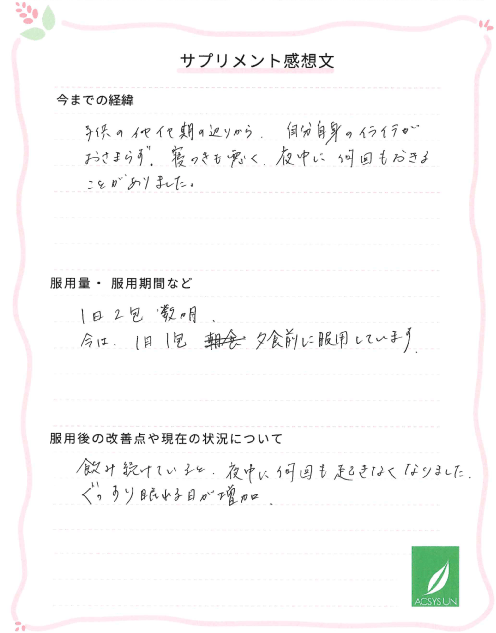 サプリメント感想文
今までの経緯
子供の イヤイヤ期の辺りから、自分自身のイライラが
おさまらず、寝つきも悪く、夜中に 何回もおきる
ことがありました。
服用量・服用期間など
1日 2包 数ヶ月、
今は、1日 1包 夕食前に服用しています。
服用後の改善点や現在の状況について
飲み続けていると、夜中に何回も起きなくなりました。
ぐっすり眠れる日が増加、
ACSYSUN